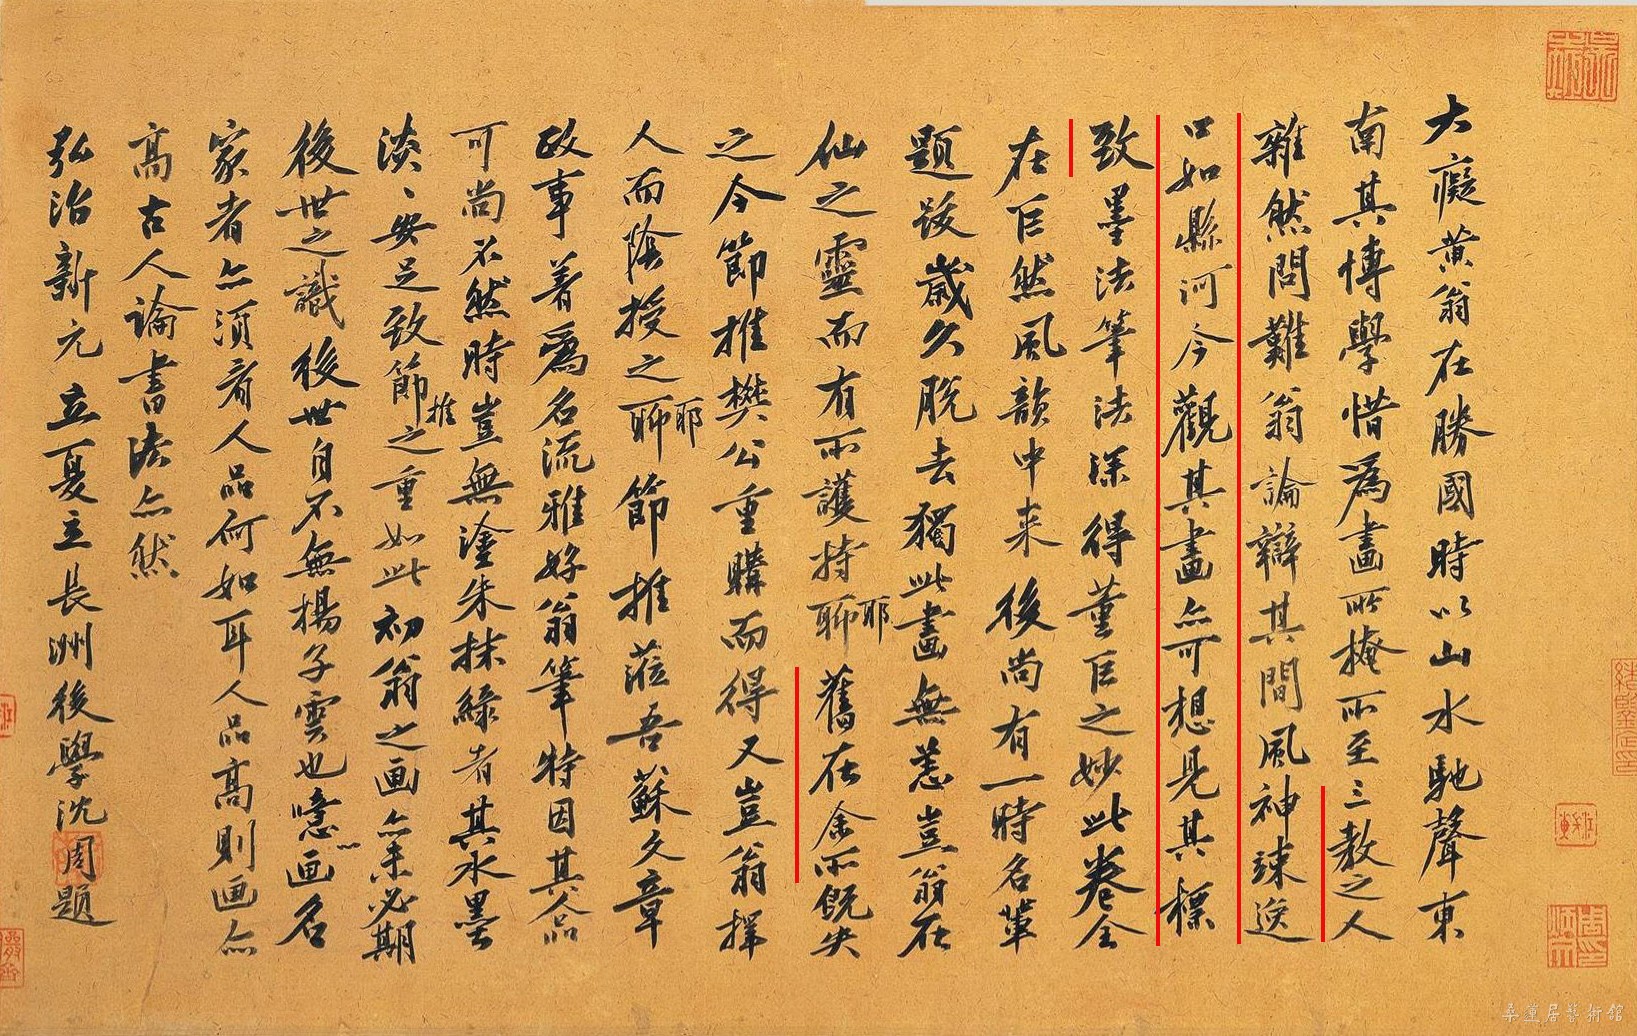 大癡黃翁在勝國時以山水馳聲東
南其博學惜爲畫所掩所至三教之人
雜然問難翁論辯其間風神竦逸
口如縣河今觀其畫亦可想見其標
致墨法筆法深得董巨之妙此卷全
在巨然風韻中来後尚有一時名輩
題跋歲久脫去獨此畫無恙豈翁在
仙之靈而有所護持聊耶舊在余所既失
之今節推樊公重購而得又豈翁擇
人而陰授之聊耶節推蒞吾蘇文章
政事著爲名流雅好翁筆特因其人品
可尚不然時豈無塗朱抹綠者其水墨
淡、安足致節推之重如此初翁之画亦未必期
後世之識後世自不無揚子雲也噫画名
家者亦須看人品何如耳人品高則画亦
高古人論書法亦然
弘治新元立夏立長洲後學沈周題
桑蓮居藝術館